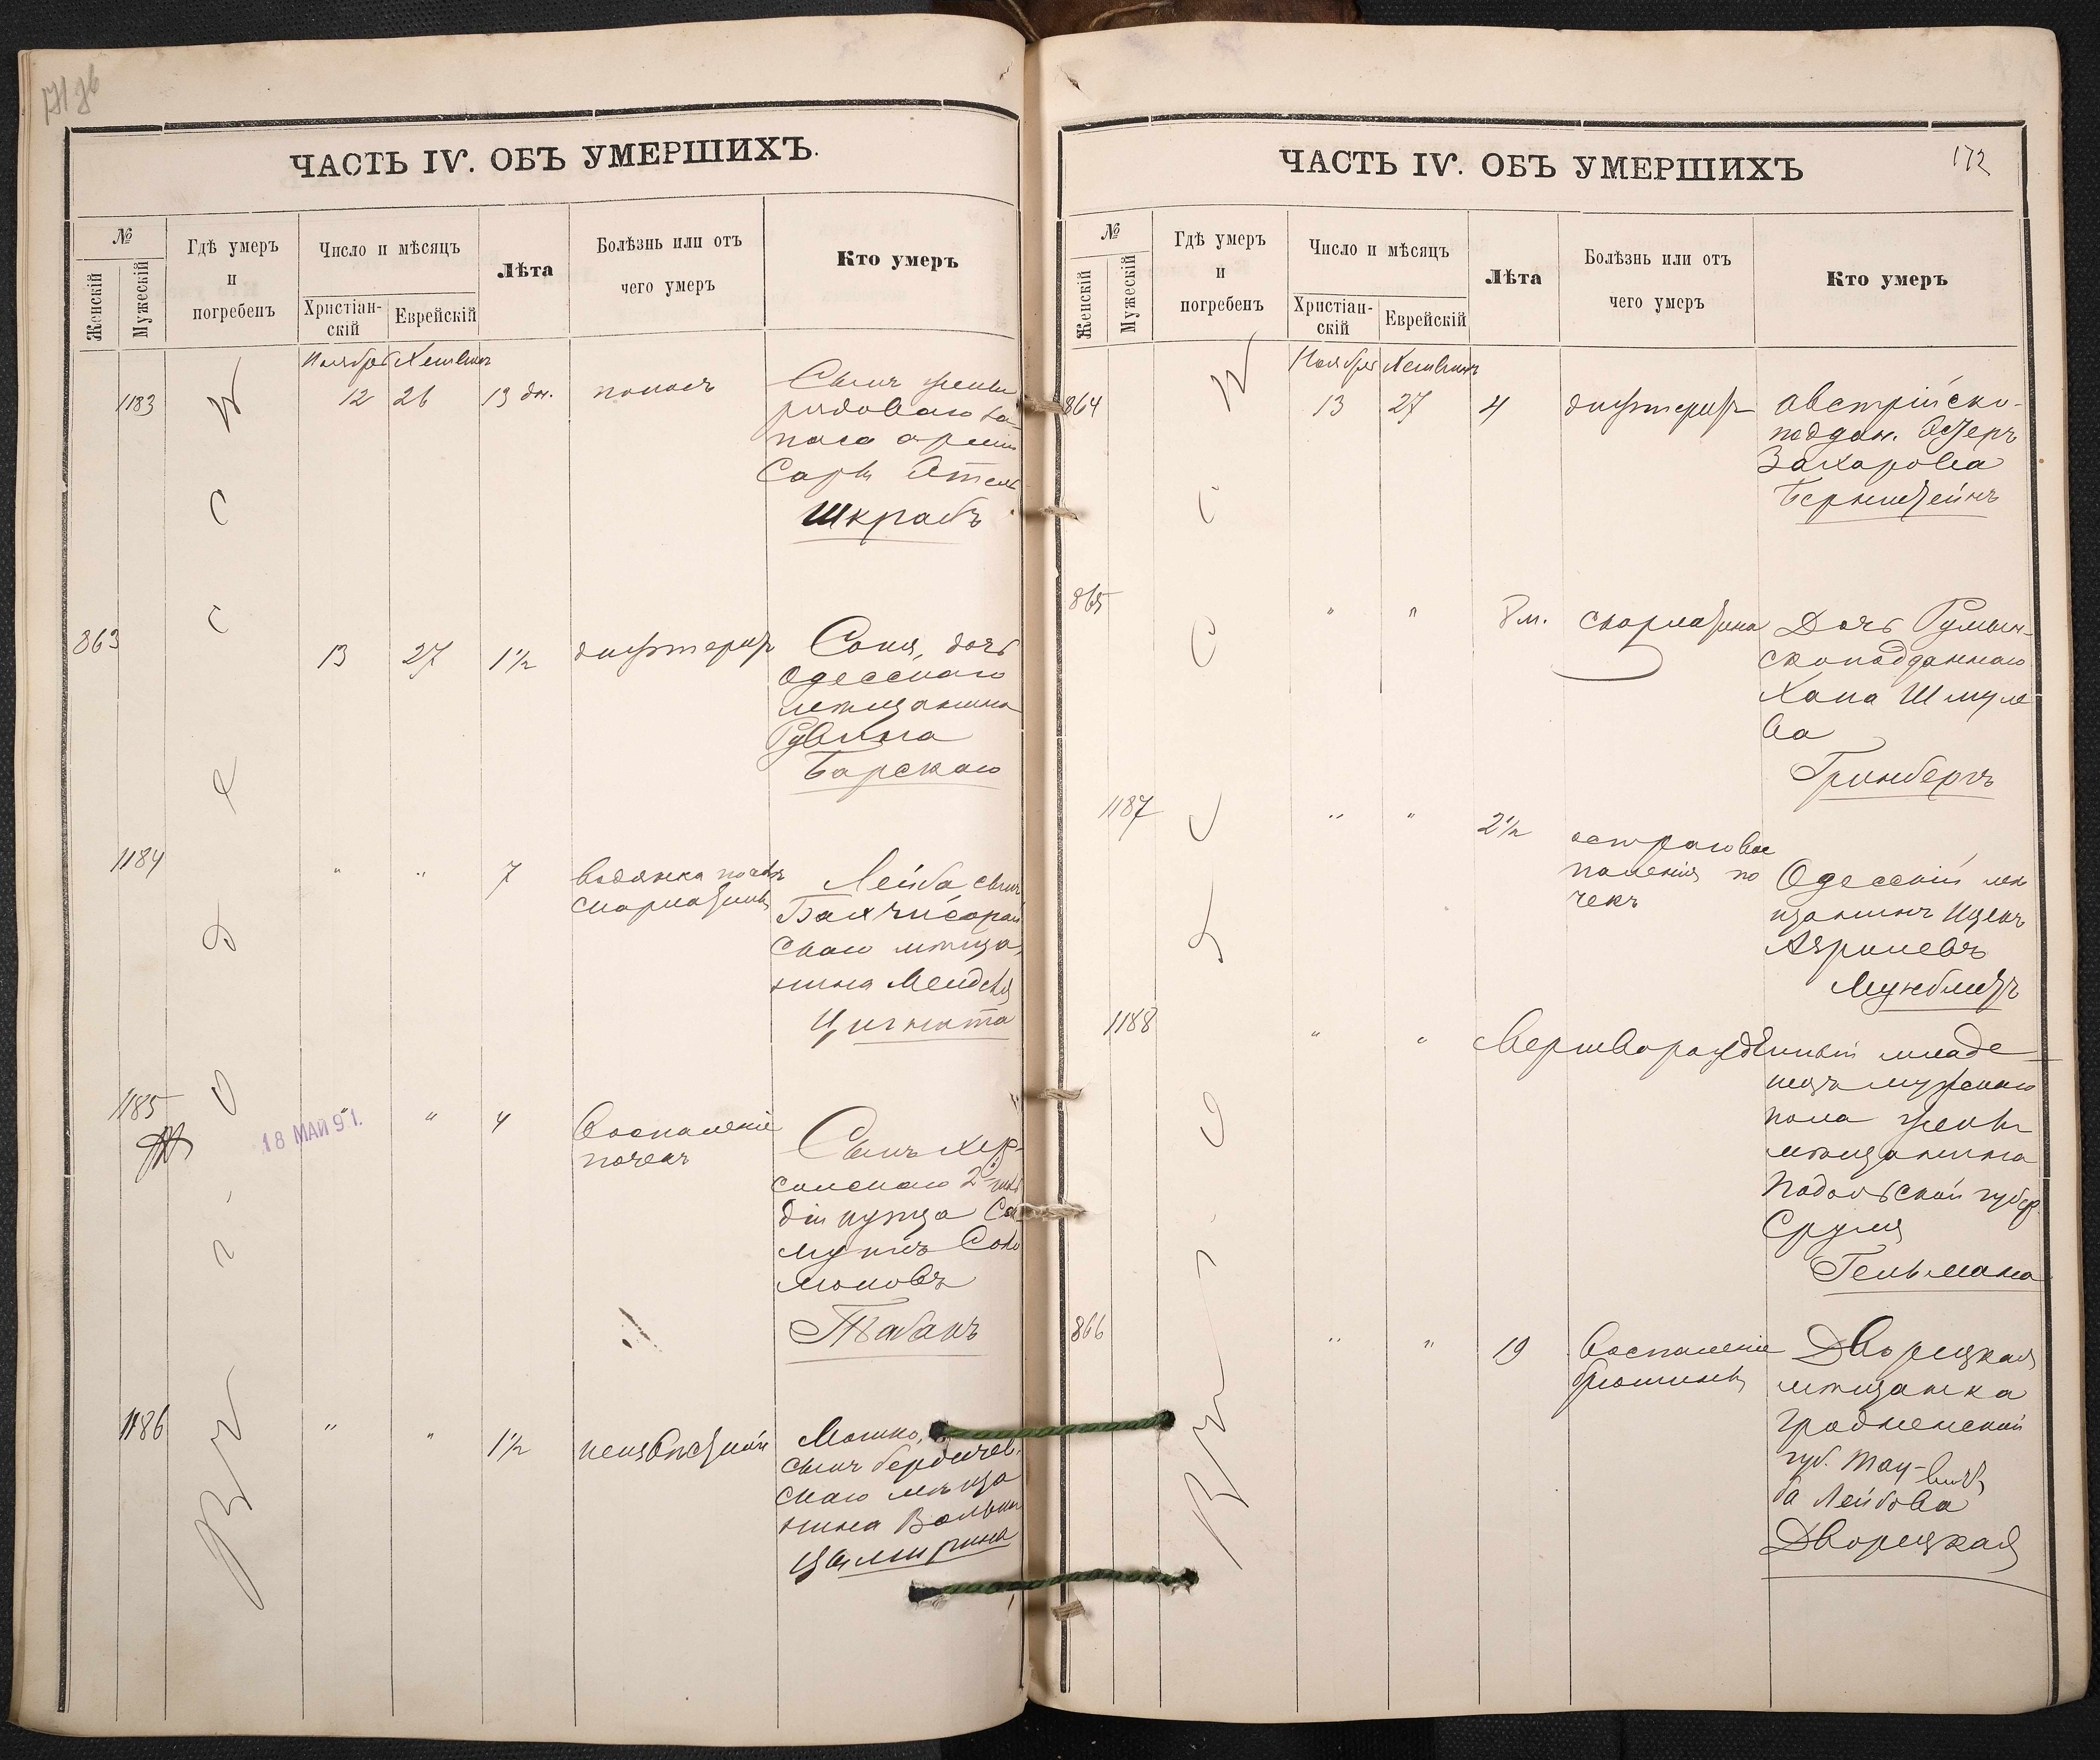 171 об
ЧАСТЬ IV. ОБЪ УМЕРШИХЪ.
№
Женскій
Мужескій
Гдѣ умеръ
и
погребенъ
Число и мѣсяцъ
Христіан-
скій
Еврейскій
Лѣта
Болѣзнь или отъ
чего умеръ
Кто умеръ
Ноября Хешванъ
1183 12 26 13 дн. поносъ
Сынъ жены
рядоваго за-
паса арміи
Сары
Шкрабъ
863 13 27 1½ дифтеритъ
Соня, дочь
Одесскаго
мѣщанина
Рувина
Барскаго
1184 " " 7 водянка послѣ
скарлатины
Лейба сынъ
Бахчисарай
скаго мѣща
нина Менделя
Цигната
1185 " " 4 Воспаленіе
почекъ
18 МАЙ 91.
Сынъ Хер-
сонскаго 2й гиль
діи купца Са
муилъ Соло
моновъ
Табакъ
1186 " " 1½ неизвѣстной
Мошко,
сынъ бердичев.
скаго мѣща
нина Вольки
Цамирина
въ г. Одессѣ
ЧАСТЬ IV. ОБЪ УМЕРШИХЪ
172
№
Женскій
Мужескій
Гдѣ умеръ
и
погребенъ
Число и мѣсяцъ
Христіан-
скій
Еврейскій
Лѣта
Болѣзнь или отъ
чего умеръ
Кто умеръ
Ноября Хешванъ
864 13 27 4 дифтеритъ
Австрійско-
поддан. Эстеръ
Захарова
Бернштейнъ
865 " " 8 м. скарлатина
Дочь Румын-
скоподданнаго
Хапа Шмуле
ва
Гринбергъ
1187 " " 2½ острое вос
паленіе по
чекъ
Одесскій мѣ
щанинъ Ицекъ
Азрилевъ
Мунблитъ
1188 " " Мертворожденный младе
нецъ мужскаго
пола жены
мѣщанина
Подольской губер.
Сруля
Гельмана
866 " " 19 Воспаленіе
брюшины
Дворецкая
мѣщанка
Гродненской
губ.
ба Лейбова
Дворецкая
въ г. Одессѣ